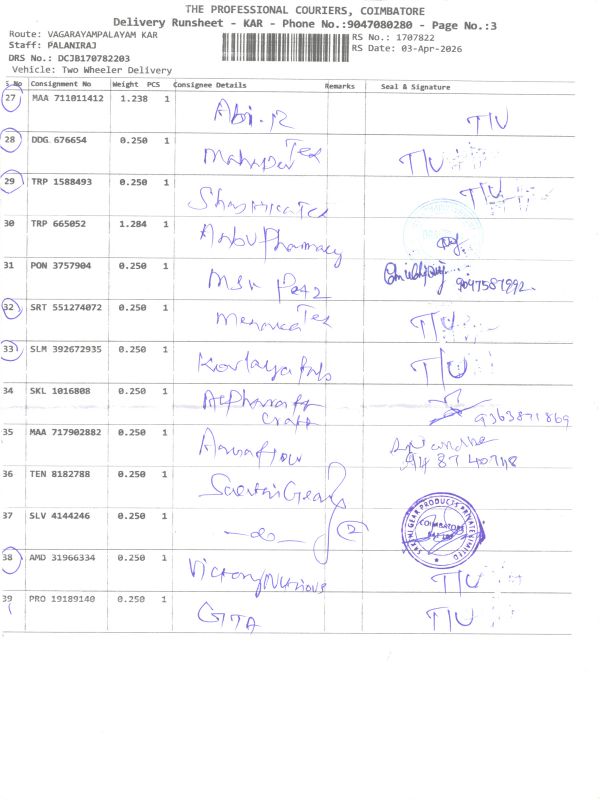 THE PROFESSIONAL COURIERS, COIMBATORE
Delivery Runsheet - KAR - Phone No.:9047080280 - Page No.:3
Route: VAGARAYAMPALAYAM KAR
RS No.: 1707822
Staff: PALANIRAJ
RS Date: 03-Apr-2026
DRS No.: DCJB170782203
Vehicle: Two Wheeler Delivery
S.No Consignment No Weight PCS Consignee Details Remarks Seal & Signature
27 MAA 711011412 1.238 1 Abi-R T/U
28 DDG 676654 0.250 1 Tex T/U
29 TRP 1588493 0.250 1 Tex T/U
30 TRP 665052 1.284 1 Anbu Pharmacy
31 PON 3757904 0.250 1 MSK 9047587992
32 SRT 551274072 0.250 1 Menaka Tex T/U
33 SLM 392672935 0.250 1 T/U
34 SKL 1016808 0.250 1 Craft 9363871869
35 MAA 717902882 0.250 1
36 TEN 8182788 0.250 1 Gears
37 SLV 4144246 0.250 1 2
SAKTHI GEAR PRODUCTS PRIVATE LIMITED
COIMBATORE
38 AMD 31966334 0.250 1 Victory T/U
39 PRO 19189140 0.250 1 GITA T/U